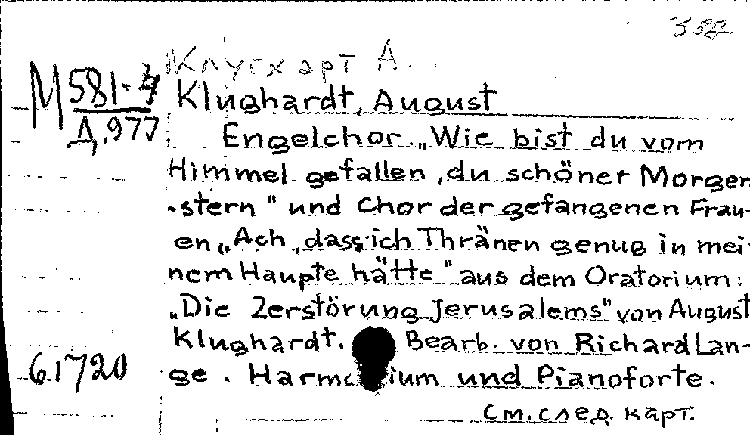 Клугхарт А.
М 581-4
Д.977
Klughardt, August
Engelchor „Wie bist du vom
Himmel gefallen, du schöner Morgen
-stern" und Chor der gefangenen Frau-
en „Ach, dass ich Thränen genug in mei-
nem Haupte hätte" aus dem Oratorium:
„Die Zerstörung Jerusalems" von August
Klughardt. Bearb. von Richard Lan-
ge. Harmonium und Pianoforte.
61720
См. след. карт.